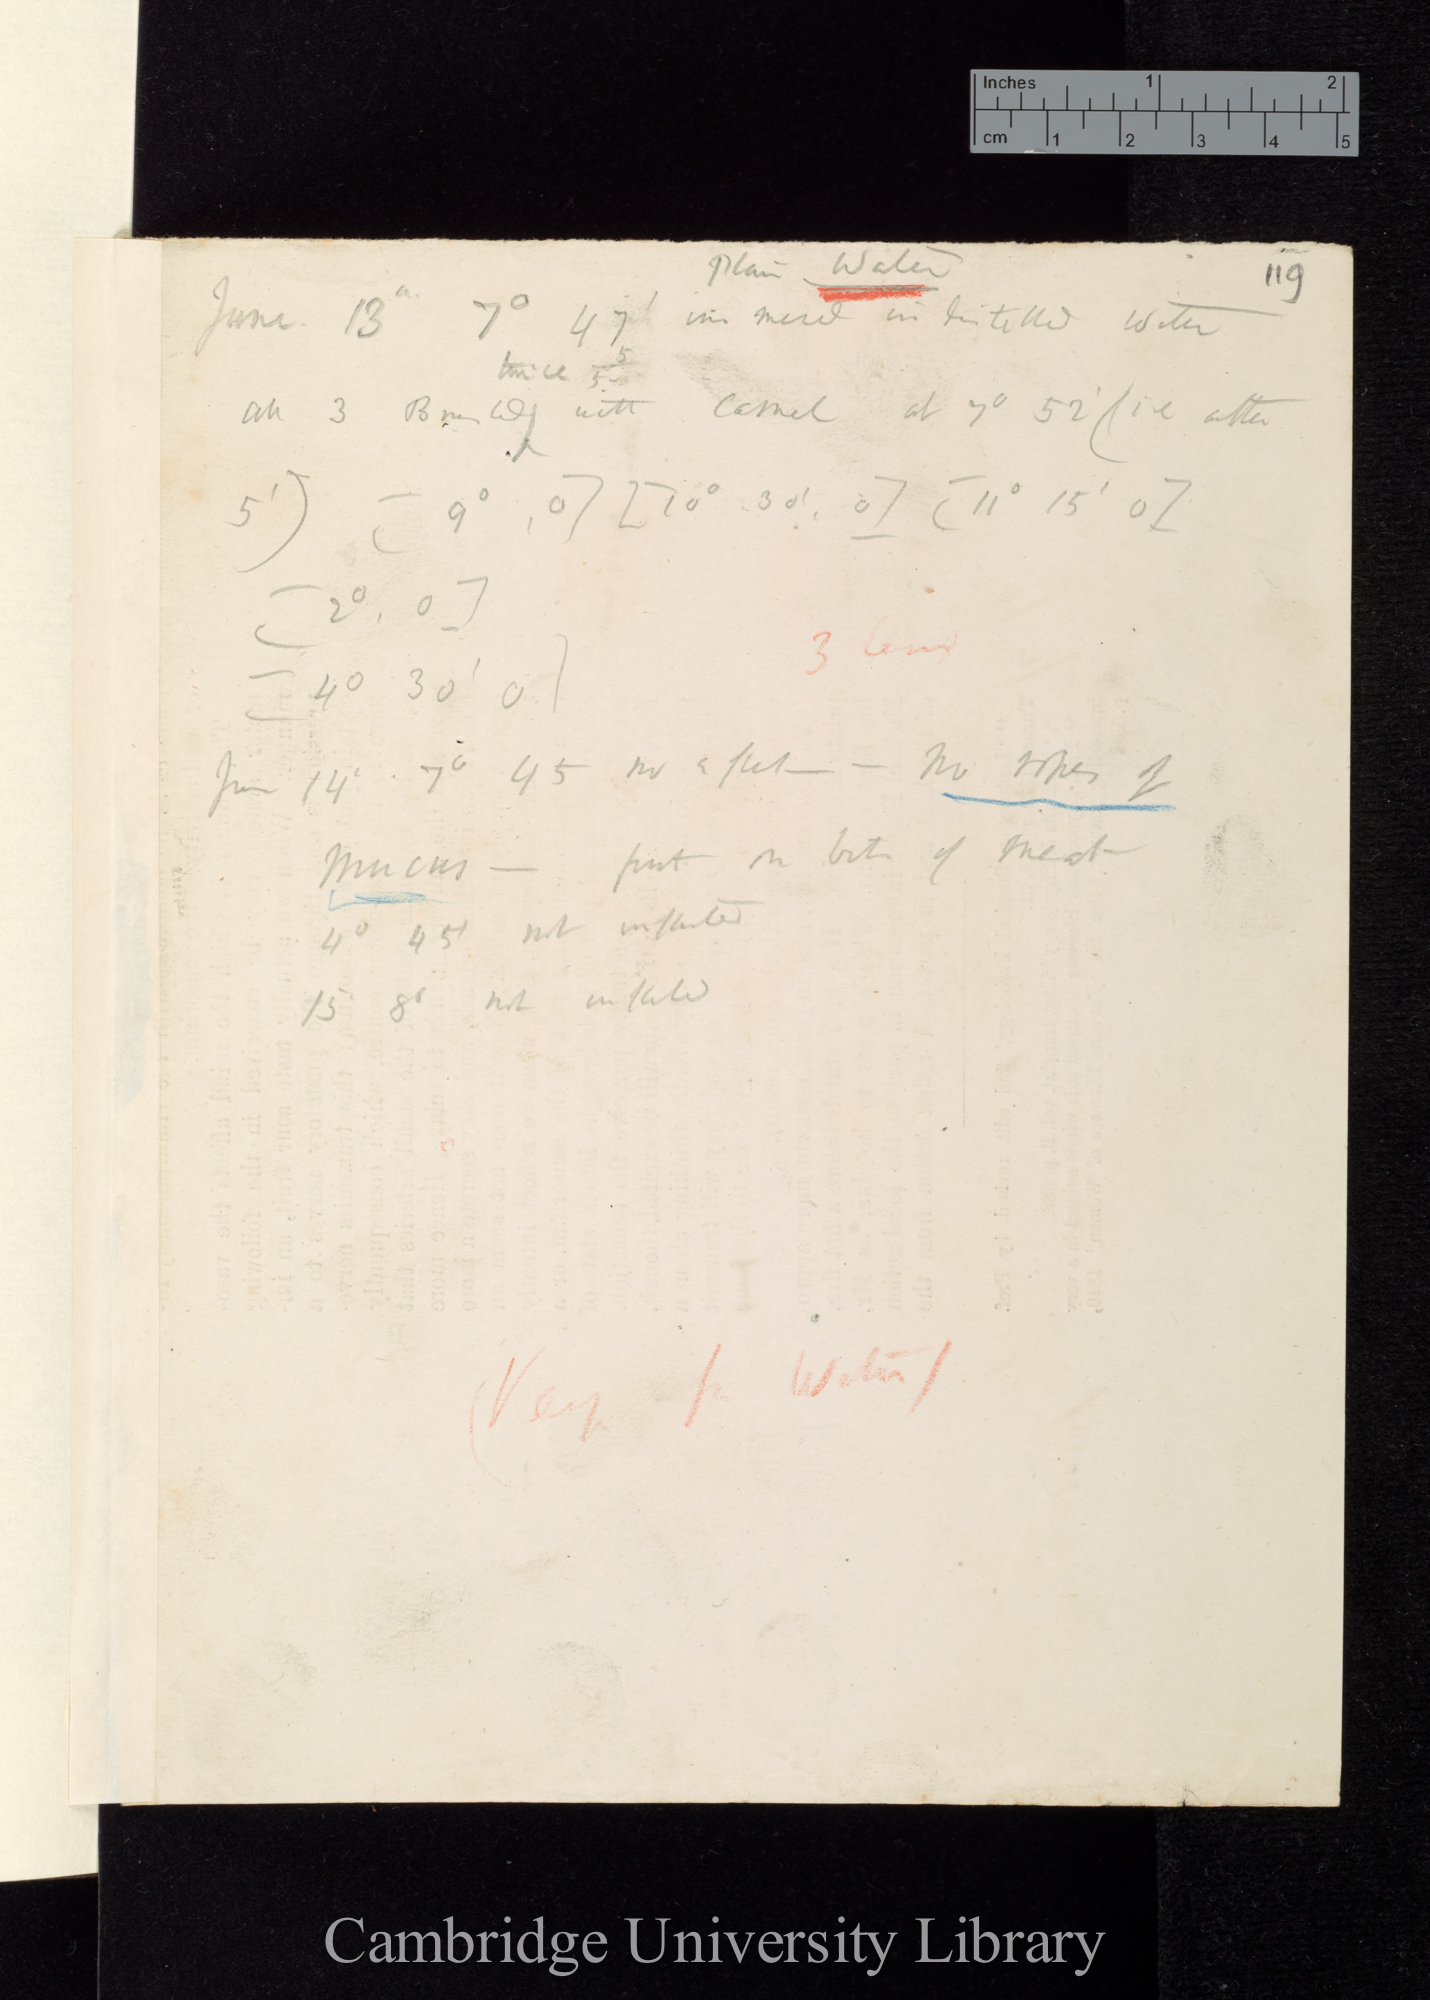 Inches 1 2
cm 1 2 3 4 5
119
Plain Water
June 13th 7° 47' immersed in distilled water
twice 5/5
all 3 Brushed with Camel at 7° 52' (i.e after
5') [9°, 0] [10° 30', 0] [11° 15' 0]
[2°, 0]
3 leaves
[4° 30' 0]
June 14' 7° 45 no effect — No ropes of
Mucus — put on bits of meat
4° 45' not inflected
15' 8° not inflected
(Keep for Water)
Cambridge University Library